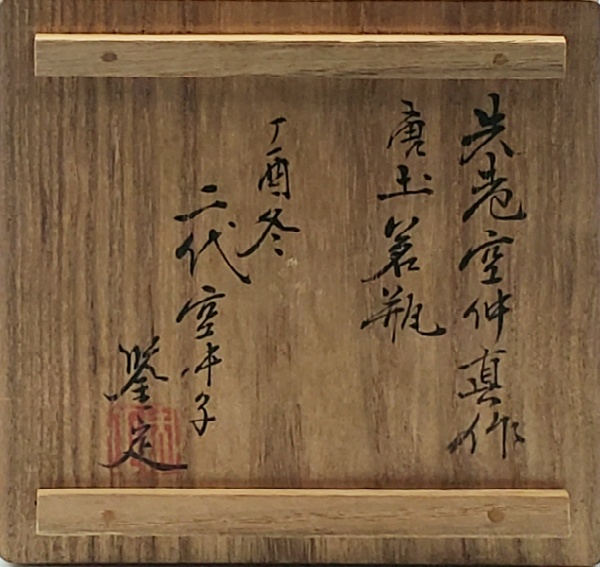 先考空仲真作
唐土茗瓶
丁酉冬
二代空中子
鑒定